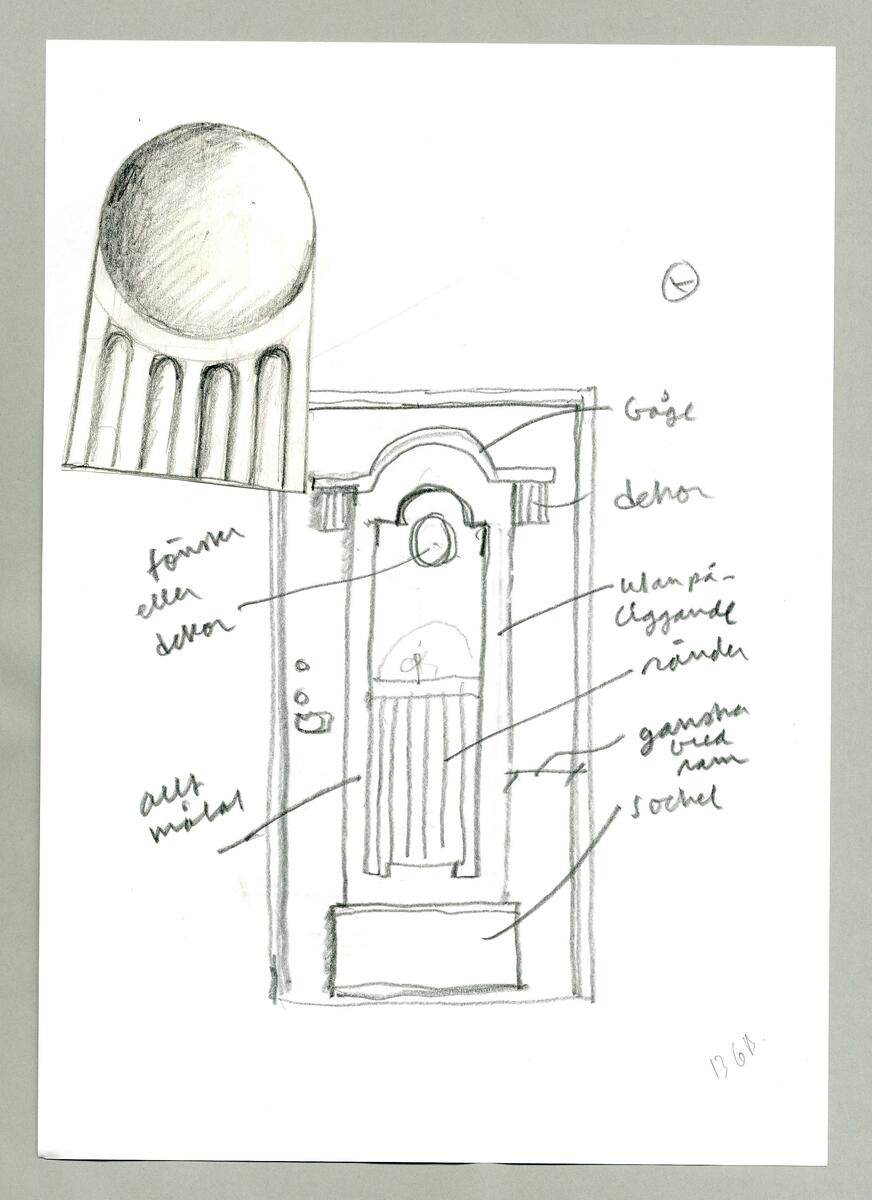 båge
dekor
fönster
eller
dekor
utanpå-
liggande
ränder
ganska
bred
ram
allt
målat
sockel
13 6B.